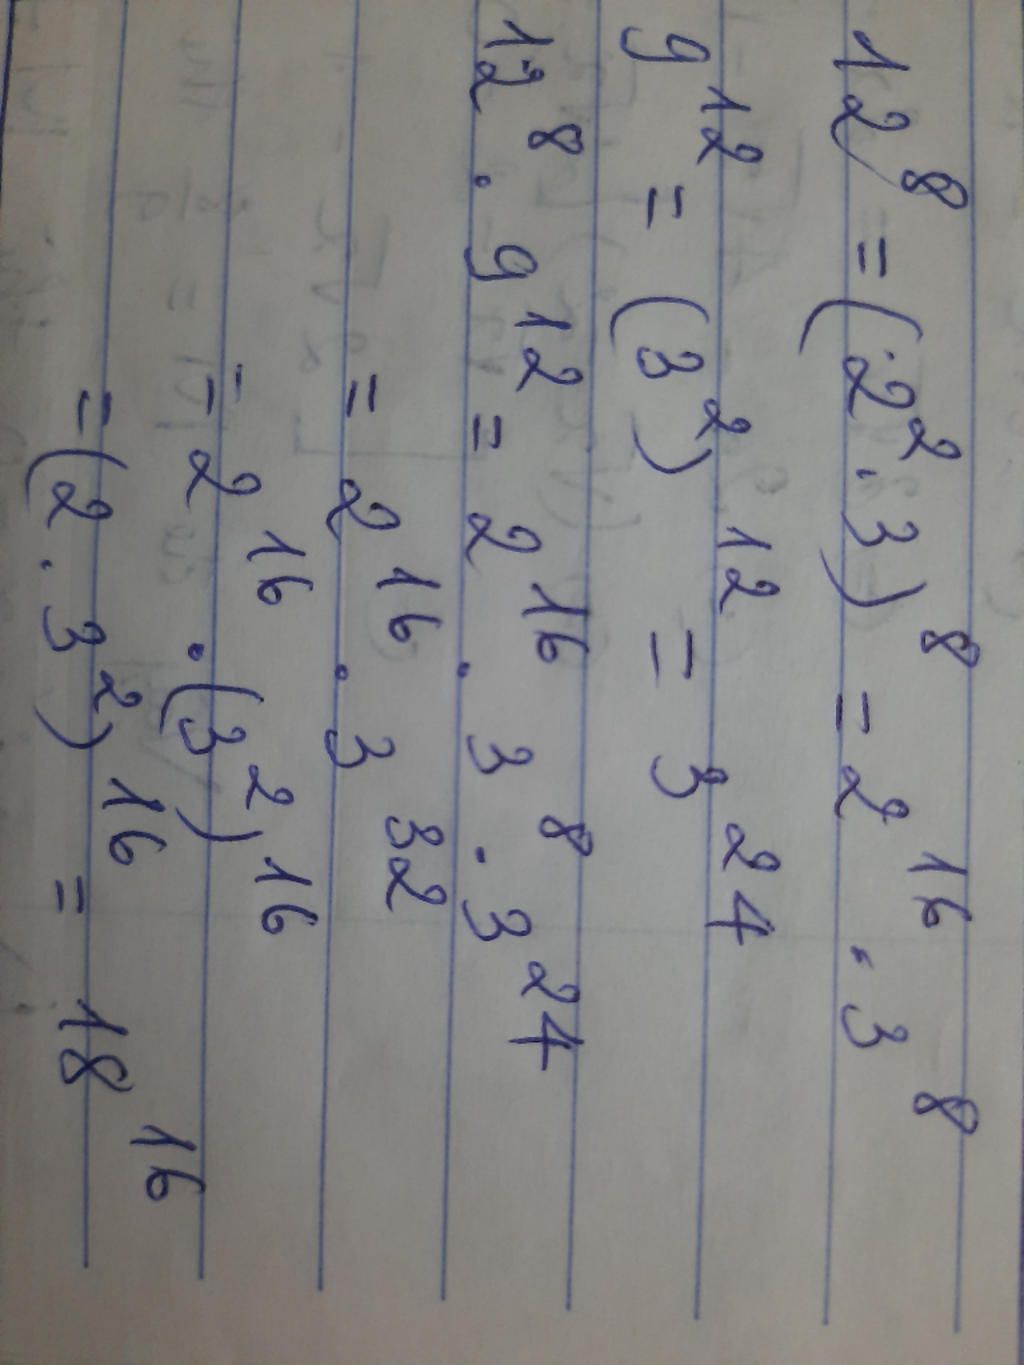 12⁸ = (2².3)⁸ = 2¹⁶.3⁸
9¹² = (3²)¹² = 3²⁴
12⁸.9¹² = 2¹⁶.3⁸.3²⁴
= 2¹⁶.3³²
= 2¹⁶.(3²)¹⁶
= (2.3²)¹⁶ = 18¹⁶